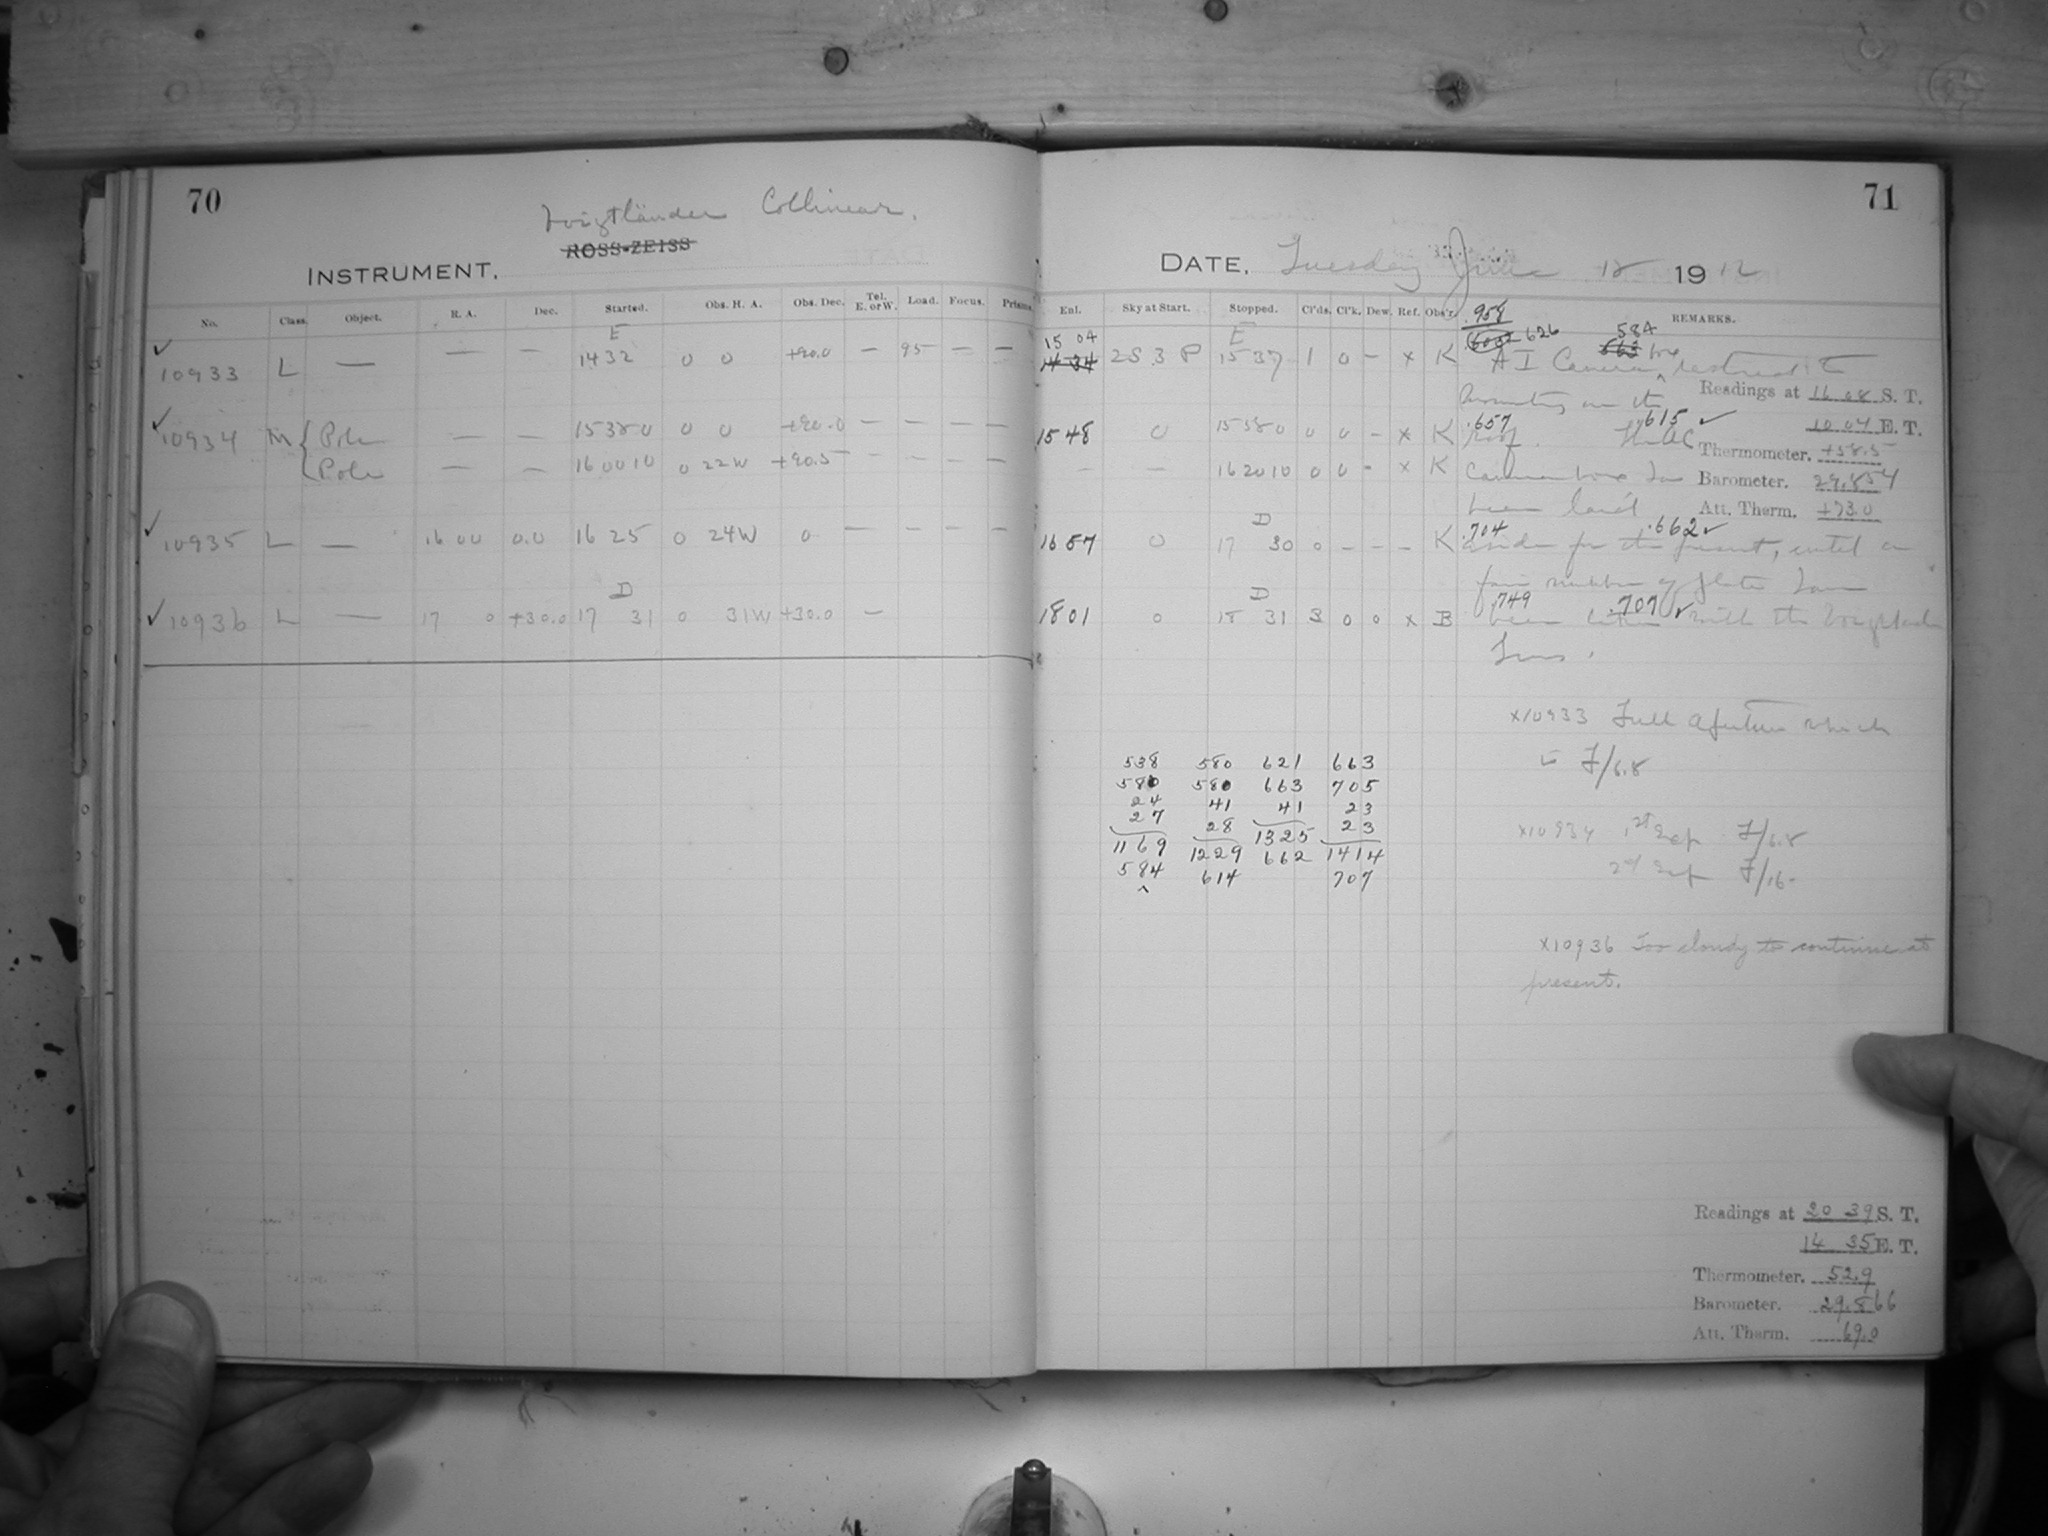 70
Voigtländer Collinear.
ROSS-ZEISS
INSTRUMENT.
No. Class. Object. R. A. Dec. Started. Obs. H. A. Obs. Dec. Tel. E. or W. Load. Focus. Prisms.
E
10933 L — — — 1432 0 0 +90.0 — 95 — —
10934 M { Pole — — 15380 0 0 +90.0 — — — —
Pole — — 160010 0 22W +90.5 — — — —
10935 L — 16 00 0.0 16 25 0 24W 0 — — — —
D
10936 L — 17 0 +30.0 17 31 0 31W +30.0 —
71
DATE. Tuesday June 18 1912
Enl. Sky at Start. Stopped. Cl'ds. Cl'k. Dew. Ref. Obs'r. REMARKS.
.958
15 04 E 626 584
14 34 2S 3 P 15 37 1 0 - x K A I Camera box
mounting on the
Readings at 16 08 S. T.
.657 .615 ✓
1548 0 15580 0 0 - x K roof. The AC
10 04 E. T.
Thermometer. +58.5
— — 162010 0 0 - x K Camera box has
Barometer. 29.854
been laid
Att. Therm. +73.0
D .704 .662 ✓
1657 0 17 30 0 - - - K aside for the present, until a
fair number of plates have
D .749 .707 ✓
1801 0 18 31 3 0 0 x B been taken with the Voigtländer
Lens.
x10933 Full aperture which
is F/6.8
538 580 621 663
580 580 663 705
24 41 41 23
27 28 1325 23
1169 1229 662 1414
584 614 707
x10934 1st Exp F/6.8
2d Exp F/16-
x10936 Too cloudy to continue at
present.
Readings at 20 39 S. T.
14 35 E. T.
Thermometer. 52.9
Barometer. 29.866
Att. Therm. 69.0